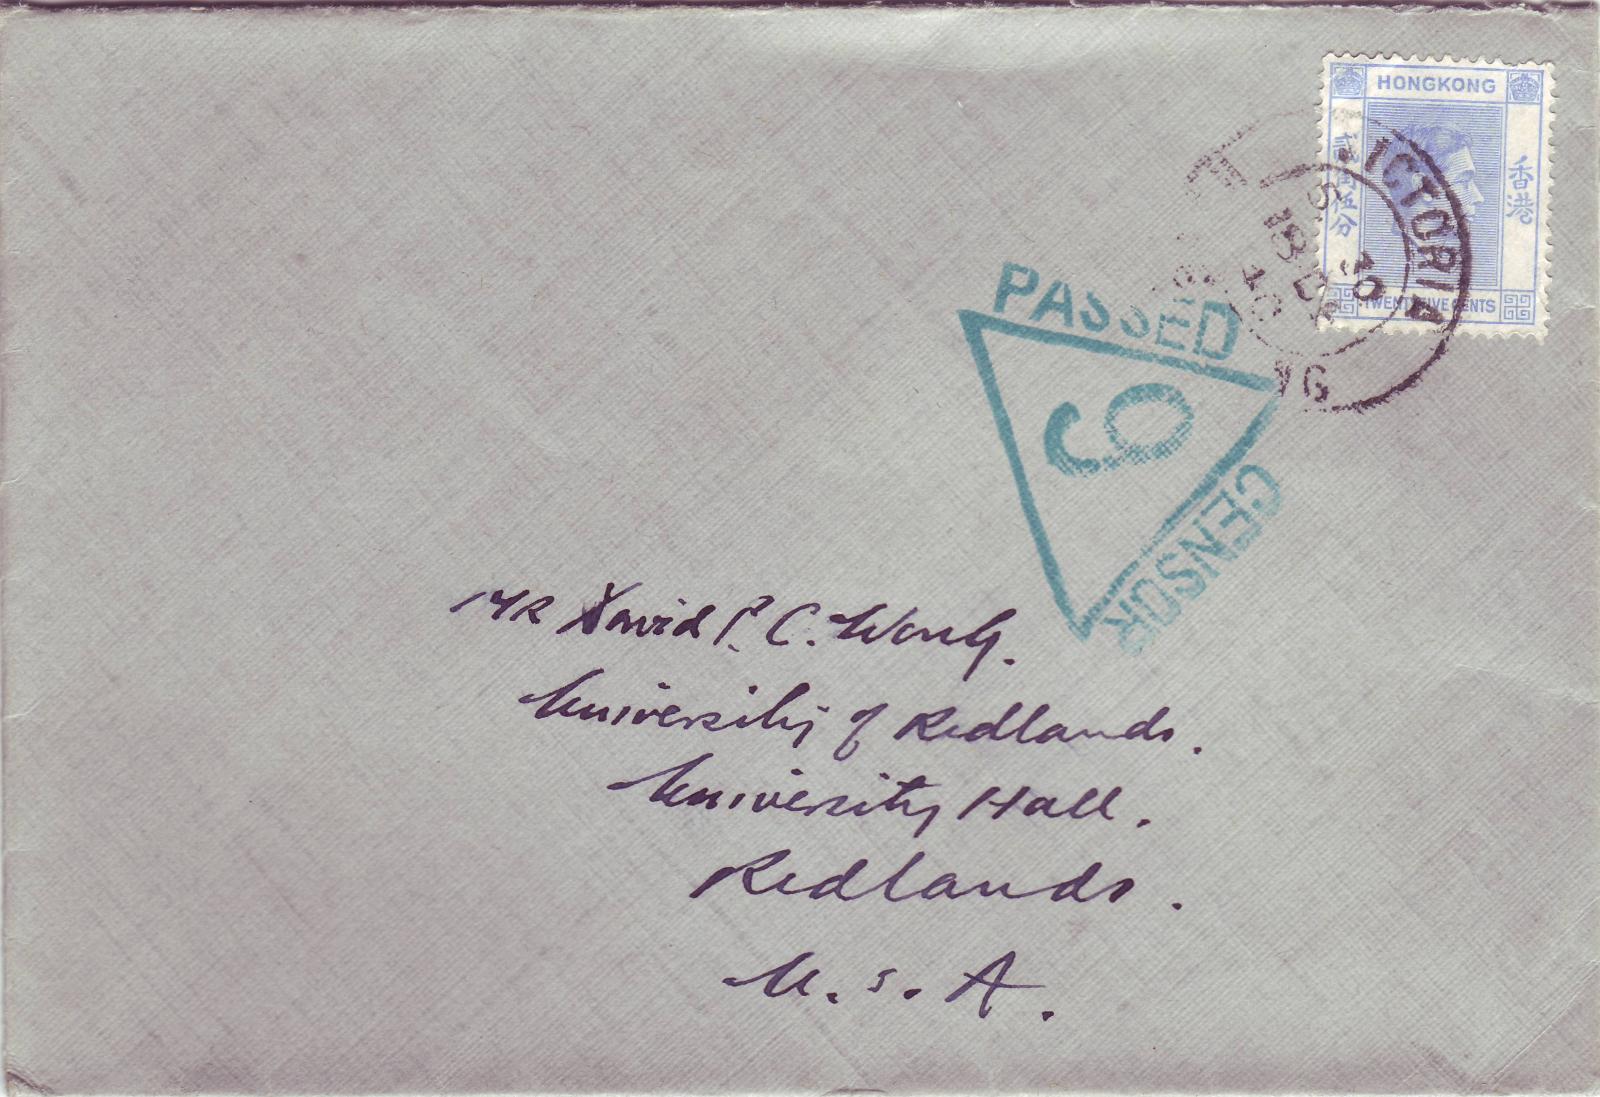 HONGKONG
貳角伍分
香港
TWENTY FIVE CENTS
VICTORIA
PASSED
6
CENSOR
MR David P. C. Wong.
University of Redlands.
University Hall.
Redlands.
U. S. A.